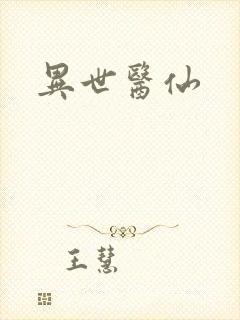 異世醫仙
王慧